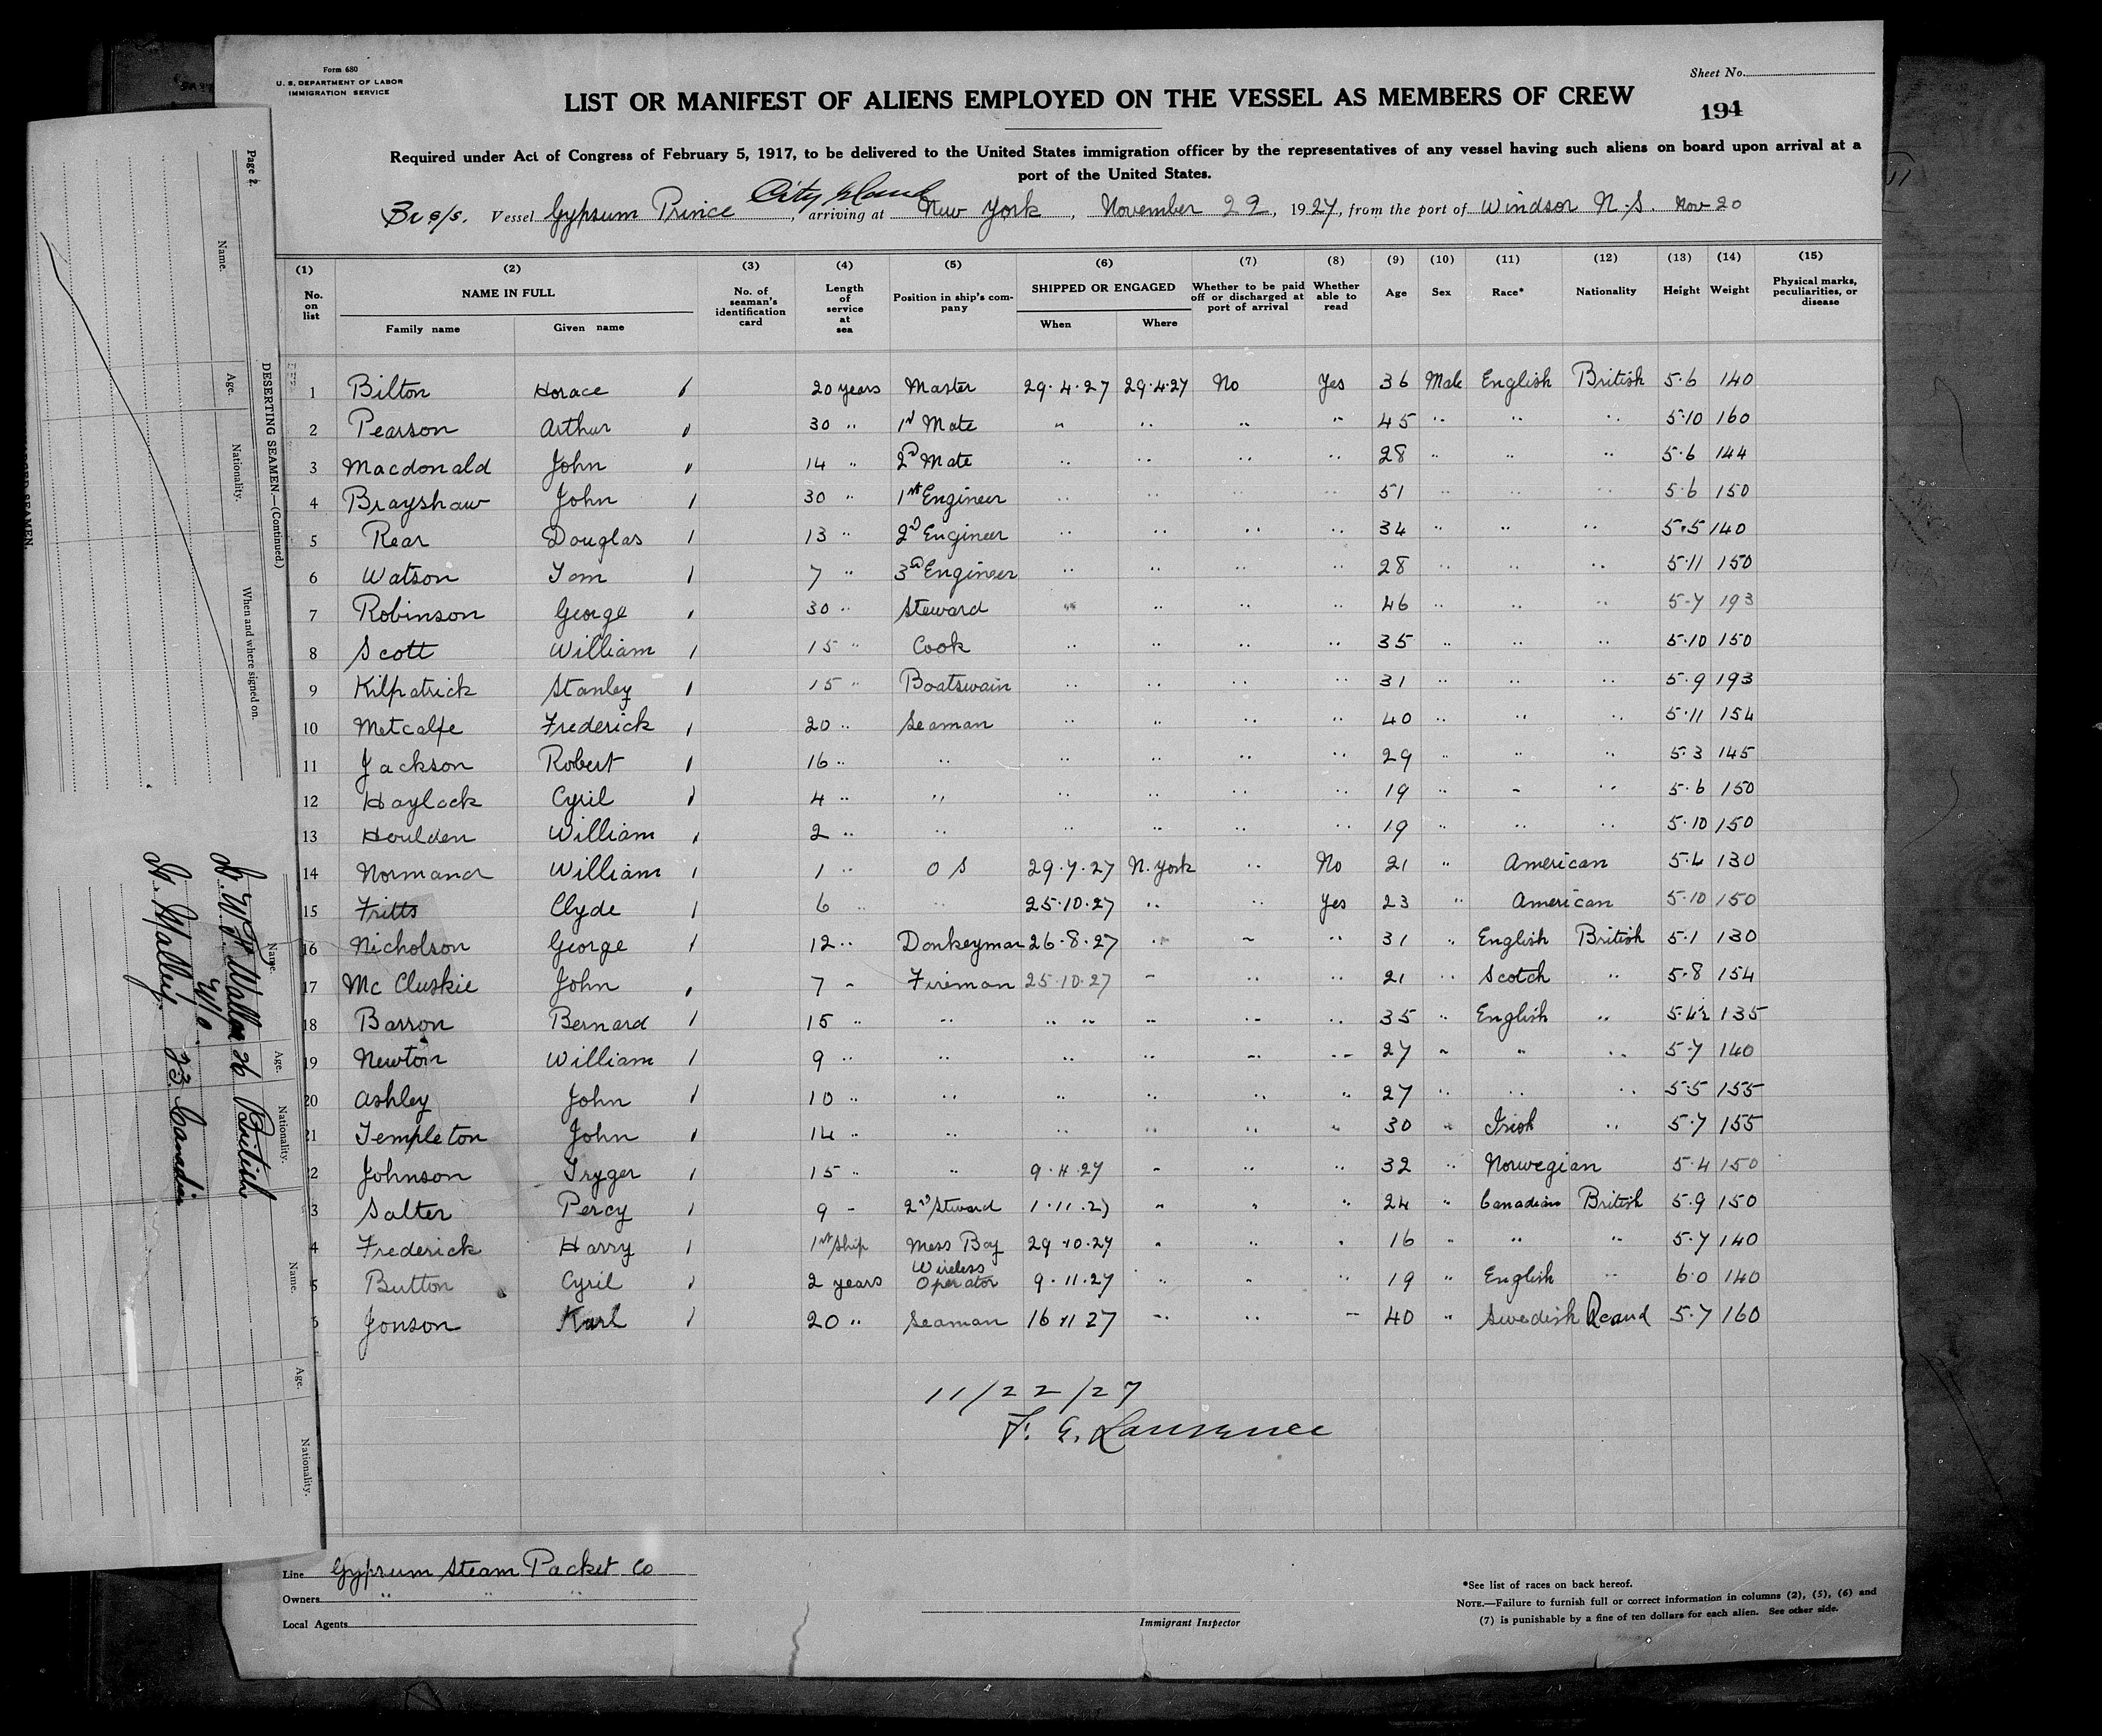 Form 680
U. S. DEPARTMENT OF LABOR
IMMIGRATION SERVICE
Sheet No.
LIST OR MANIFEST OF ALIENS EMPLOYED ON THE VESSEL AS MEMBERS OF CREW
194
Required under Act of Congress of February 5, 1917, to be delivered to the United States immigration officer by the representatives of any vessel having such aliens on board upon arrival at a
port of the United States.
City Island
Br s/s. Vessel Gypsum Prince, arriving at New York, November 22, 1927, from the port of Windsor N.S. Nov 20
(1) (2) (3) (4) (5) (6) (7) (8) (9) (10) (11) (12) (13) (14) (15)
No. on list NAME IN FULL Family name Given name No. of seaman's identification card Length of service at sea Position in ship's company SHIPPED OR ENGAGED When Where Whether to be paid off or discharged at port of arrival Whether able to read Age Sex Race* Nationality Height Weight Physical marks, peculiarities, or disease
1 Bilton Horace 20 years Master 29.4.27 29.4.27 No Yes 36 Male English British 5.6 140
2 Pearson Arthur 30 " 1st Mate " " " " 45 " " " 5.10 160
3 Macdonald John 14 " 2nd Mate " " " " 28 " " " 5.6 144
4 Brayshaw John 30 " 1st Engineer " " " " 51 " " " 5.6 150
5 Rear Douglas 13 " 2nd Engineer " " " " 34 " " " 5.5 140
6 Watson Tom 7 " 3rd Engineer " " " " 28 " " " 5.11 150
7 Robinson George 30 " Steward " " " " 46 " " " 5.7 193
8 Scott William 15 " Cook " " " " 35 " " " 5.10 150
9 Kilpatrick Stanley 15 " Boatswain " " " " 31 " " " 5.9 193
10 Metcalfe Frederick 20 " Seaman " " " " 40 " " " 5.11 154
11 Jackson Robert 16 " " " " " " 29 " " " 5.3 145
12 Haylock Cyril 4 " " " " " " 19 " " " 5.6 150
13 Houlden William 2 " " " " " " 19 " " " 5.10 150
14 William 1 " O S 29.7.27 N. York " No 21 " American 5.4 130
15 Fritts Clyde 6 " " 25.10.27 " " Yes 23 " American 5.10 150
16 Nicholson George 12 " Donkeyman 26.8.27 " " " 31 " English British 5.1 130
17 Mc Cluskie John 7 " Fireman 25.10.27 " " " 21 " Scotch " 5.8 154
18 Barron Bernard 15 " " " " " " 35 " English " 5.4½ 135
19 Newton William 9 " " " " " " 27 " " " 5.7 140
20 Ashley John 10 " " " " " " 27 " " " 5.5 155
21 Templeton John 14 " " " " " " 30 " Irish " 5.7 155
2 Johnson Tryger 15 " " 9.11.27 " " " 32 " Norwegian 5.4 150
3 Salter Percy 9 " 2nd Steward 1.11.27 " " " 24 " Canadian British 5.9 150
4 Frederick Harry 1st Ship Mess Boy 29.10.27 " " " 16 " " " 5.7 140
5 Button Cyril 2 years Wireless Operator 9.11.27 " " " 19 " English " 6.0 140
6 Jonson Karl 20 " Seaman 16 11 27 " " " 40 " Swedish 5.7 160
11/22/27
F. G. Lawrence
Line Gypsum Steam Packet Co
Owners " " "
Local Agents
Immigrant Inspector
*See list of races on back hereof.
NOTE.—Failure to furnish full or correct information in columns (2), (5), (6) and
(7) is punishable by a fine of ten dollars for each alien. See other side.
Page 2.
DESERTING SEAMEN.—(Continued.)
Name. Age. Nationality. When and where signed on.
Name. Age. Nationality.
Name. Age. Nationality.
26 British
23 Canadian